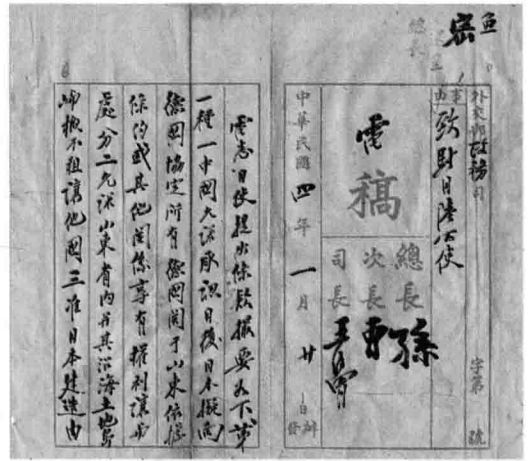 密
外交部政務司
字第 號
事由
致駐日陸公使
電稿
總長 孫
次長 曹
司長
中華民國四年一月廿 日辦發
電悉日使提出條款撮要如下第
一種一中國允諾承認日後日本擬向
德國協定所有德國關于山東依據
條約或其他關係享有權利讓與
處分二允諾山東省內并其沿海土地島
嶼概不租讓他國三准日本建造由